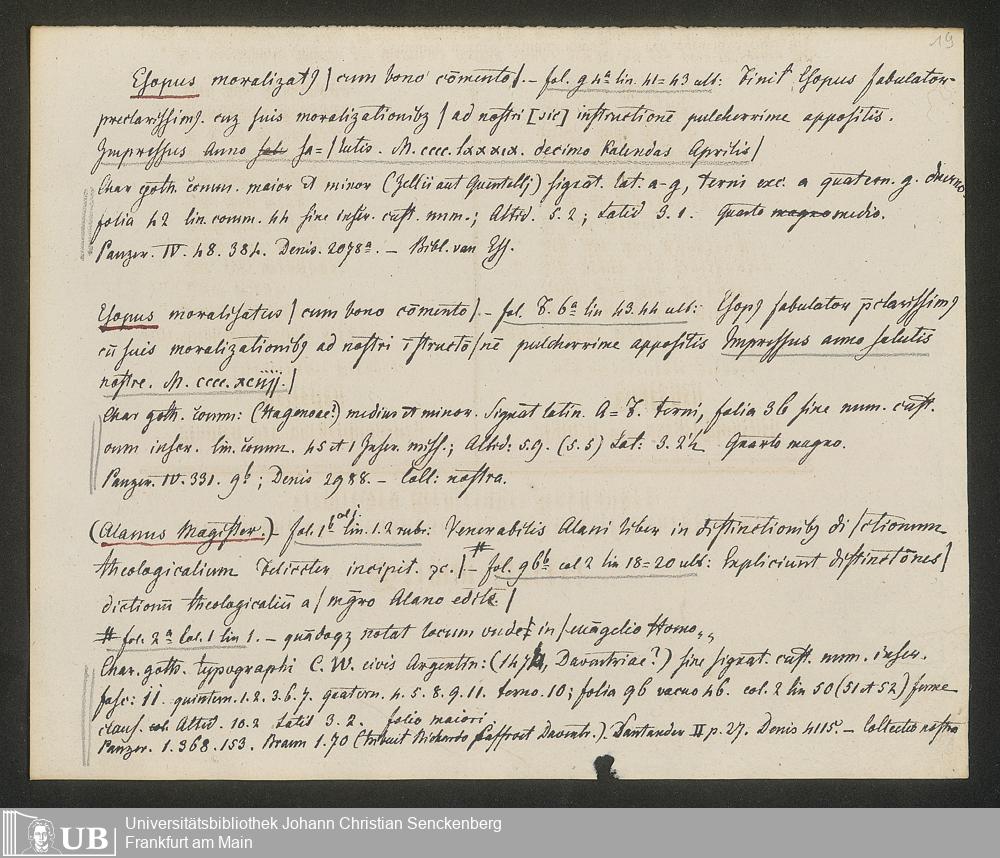 19
Esopus moralizatꝯ | cum bono cōmento |. – fol. g 4ᵃ lin. 41=43 ult: Finit Esopus fabulator
preclarissimꝯ. cuz suis moralizationibꝫ | ad nostri [sic] instructionē pulcherrime appositis.
Impressus Anno sa= | lutis. M. cccc. lxxxix. decimo Kalendas Aprilis |
Char goth. comm. maior et minor (Zellii aut Quentelij) signat. lat. a-g, terni exc. a quatern. g. duerno.
folia 42 lin. comm. 44 sine inser. cust. num.; Altid. 5. 2; Latid 3. 1. Quarto medio.
Panzer. IV. 48. 384. Denis. 2078ᵃ. – Bibl. van Ess.
Esopus moralisatus | cum bono cōmento |. – fol. F. 6ᵃ lin 43. 44 ult: Esopꝯ fabulator p̄clarissimꝯ
cū suis moralizationibꝫ ad nostri īstructō | nē pulcherrime appositis Impressus anno salutis
nostre. M. cccc. xciiij. |
Char goth. comm: (Hagenoae?) medius et minor. Signat latin. A=F. terni, folia 36 sine num. cust.
cum inser. lin. comm. 45 et 1 Inser. miss.; Altid: 5.9. (5. 5) Lat: 3. 2½ Quarto magno.
Panzer. IV. 331. 9ᵇ; Denis 2988. – Coll: nostra.
(Alanus Magister.) fol. 1ᵇ col j. lin. 1. 2 rubr: Venerabilis Alani liber in distinctionibꝫ di | ctionum
theologicalium feliciter incipit. ⁊c. | # – fol. 96ᵇ col 2 lin 18=20 ult: Expliciunt distinctōnes |
dictionū theologicaliū a | mg̅ro Alano edite. |
# fol. 2ᵃ Col. 1 lin 1. – quādoqꝫ notat locum unde in | euāgelio Homo „
Char. goth. typographi C. W. civis Argentin: (147, Daventriae?) sine signat. cust. num. inser.
fasc: 11 quintern. 1. 2. 3. 6. 7. quatern. 4. 5. 8. 9. 11. terno. 10; folia 96 vacuo 46. col. 2 lin 50 (51 et 52) summe
claus. Altid. 10. 2 Latid 3. 2. folio maiori
Panzer. 1. 368. 153. Braun 1. 70 (tribuit Richardo Paffroet Daventr.) Santander II p. 27. Denis 4115. – Collectio nostra
UB Universitätsbibliothek Johann Christian Senckenberg
Frankfurt am Main